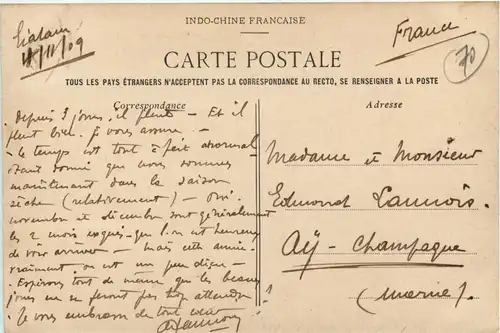 INDO-CHINE FRANÇAISE
Gialam
11/11/09
France
70
CARTE POSTALE
TOUS LES PAYS ÉTRANGERS N'ACCEPTENT PAS LA CORRESPONDANCE AU RECTO, SE RENSEIGNER A LA POSTE
Correspondance
Depuis 3 jours, il pleut – Et il
pleut bien. je vous assure. –
– le temps est tout à fait anormal
étant donné que nous sommes
maintenant dans la saison
sèche (relativement) – Oui.
novembre et décembre sont généralement
les 2 mois exquis que l'on est heureux
de voir arriver – mais cette année
vraiment, on est un peu déçu –
– Espérons tout de même que les beaux
jours ne se feront pas trop attendre
Je vous embrasse de tout cœur
Adresse
Madame et Monsieur
Edmond Lannois.
Aÿ-Champagne
(Marne).